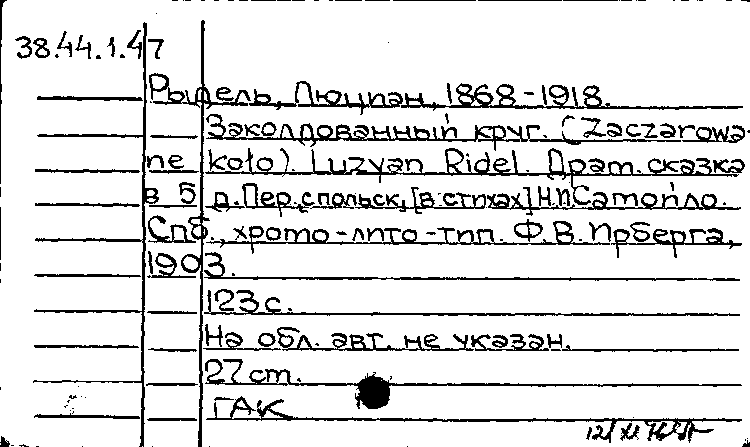 38.44.1.47
Рыдель, Люциан, 1868-1918.
Заколдованный круг. (Zaczarowa-
ne koło). Luzyan Ridel. Драт. сказка
в 5 д. Пер. с польск, [в стихах] Н.П Самойло.
Спб., хромо-лито-тип. Ф.В. Ирберга,
1903.
123 с.
На обл. авт. не указан.
27 cm.
ГАК